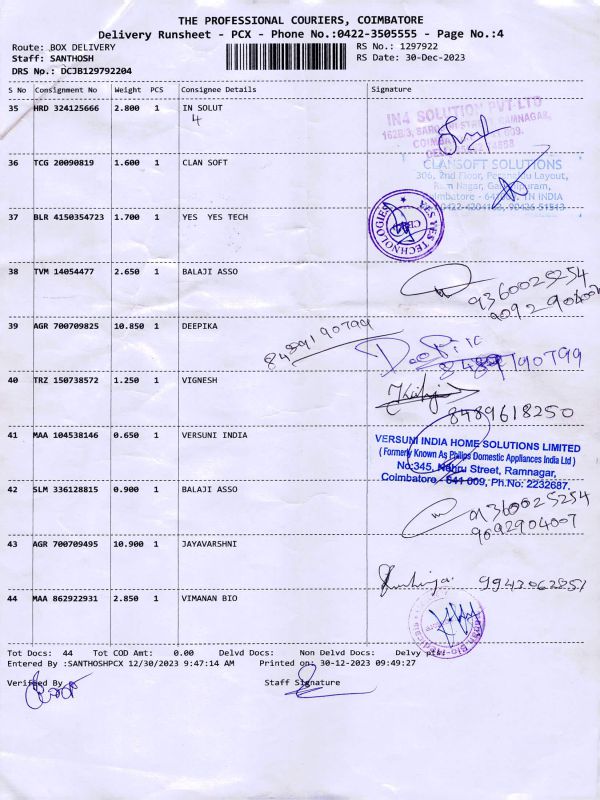 THE PROFESSIONAL COURIERS, COIMBATORE
Delivery Runsheet - PCX - Phone No.:0422-3505555 - Page No.:4
Route: BOX DELIVERY
RS No.: 1297922
Staff: SANTHOSH
RS Date: 30-Dec-2023
DRS No.: DCJB129792204
S No Consignment No Weight PCS Consignee Details Signature
35 HRD 324125666 2.800 1 IN SOLUT
4
IN4 SOLUTION PVT LTD
36 TCG 20090819 1.600 1 CLAN SOFT
CLANSOFT SOLUTIONS
306, 2nd Floor, Layout,
Ram Nagar,
TN INDIA
37 BLR 4150354723 1.700 1 YES YES TECH
YES YES TECHNOLOGIES
CBE
38 TVM 14054477 2.650 1 BALAJI ASSO
9360025254
9092904007
39 AGR 700709825 10.850 1 DEEPIKA
8489190799
8489190799
40 TRZ 150738572 1.250 1 VIGNESH
8489618250
41 MAA 104538146 0.650 1 VERSUNI INDIA
VERSUNI INDIA HOME SOLUTIONS LIMITED
( Formerly Known As Philips Domestic Appliances India Ltd )
No:345, Nehru Street, Ramnagar,
Coimbatore - 641 009, Ph.No: 2232687.
42 SLM 336128815 0.900 1 BALAJI ASSO
9360025254
9092904007
43 AGR 700709495 10.900 1 JAYAVARSHNI
44 MAA 862922931 2.850 1 VIMANAN BIO
Tot Docs: 44 Tot COD Amt: 0.00 Delvd Docs: Non Delvd Docs: Delvy
Entered By :SANTHOSHPCX 12/30/2023 9:47:14 AM Printed on: 30-12-2023 09:49:27
Verified By Staff Signature